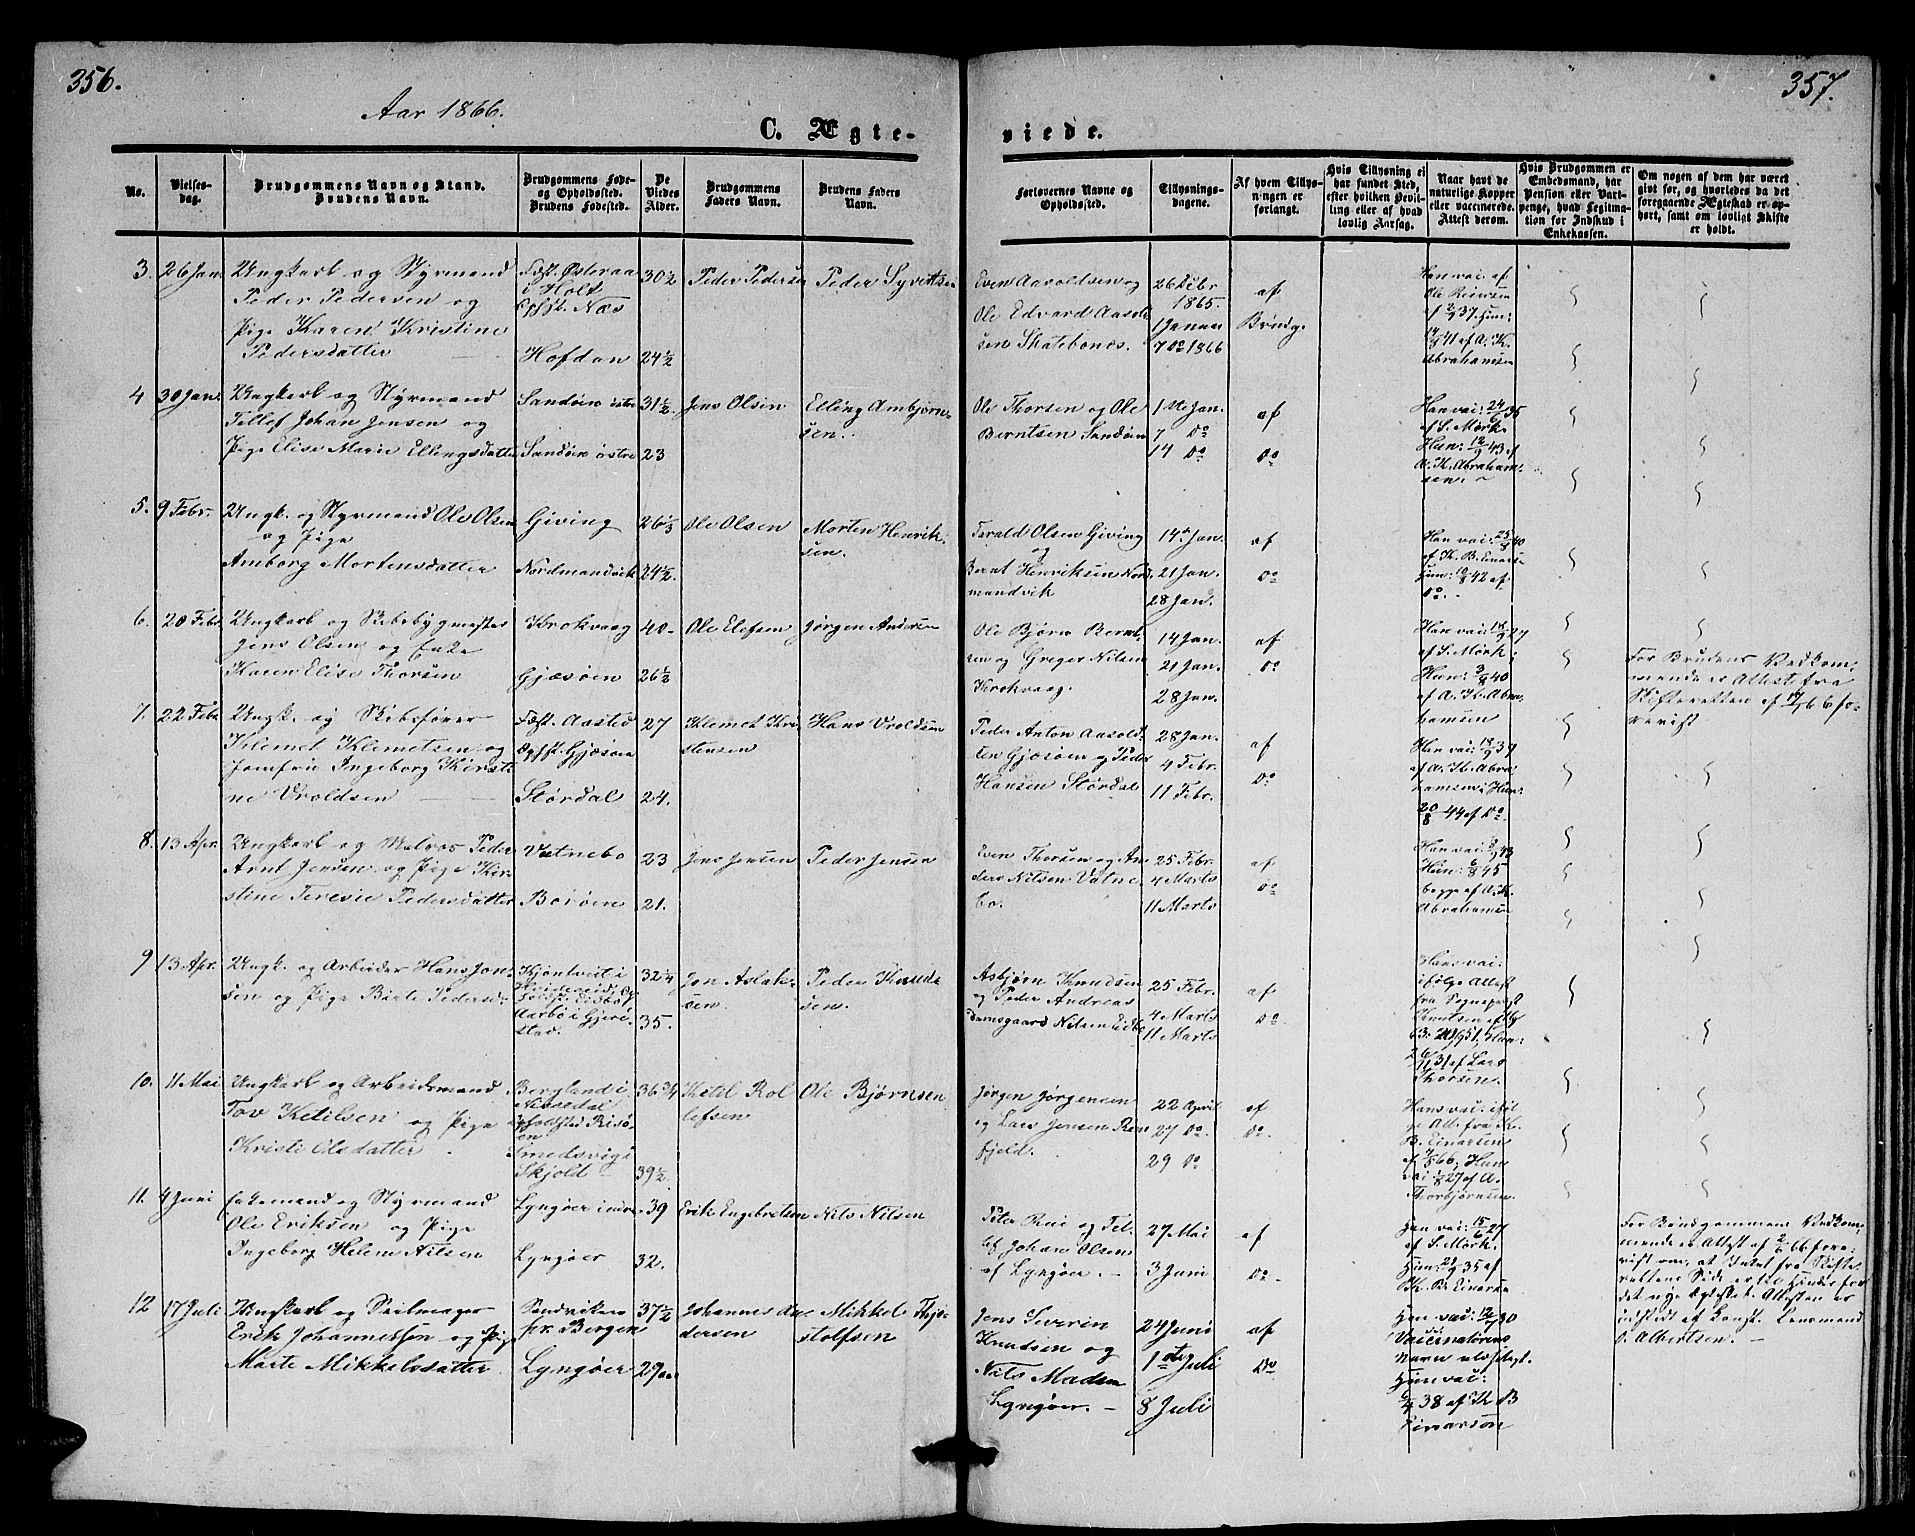 356.
357.
Aar 1866.
C. Ægte-
viede.
No.
Vielses-
dag.
Brudgommens Navn og Stand.
Brudens Navn.
Brudgommens Føde-
og Opholdssted.
Brudens Fødested.
De
Viedes
Alder.
Brudgommens
Faders Navn.
Brudens Faders
Navn.
Forlovernes Navne og
Opholdssted.
Tillysnings-
dagene.
Af hvem Tillys-
ningen er
forlangt.
Hvis Tillysning ei
har fundet Sted,
efter hvilken Bevil-
ling eller af hvad
lovlig Aarsag.
Naar havt de
naturlige Kopper
eller vaccinerede.
Attest derom.
Hvis Brudgommen er
Embedsmand, har
Pension eller Vart-
penge, hvad Legitima-
tion for Indskud i
Enkekassen.
Om nogen af dem har været
givt før, og hvorledes da det
foregaaende Ægteskab er op-
hørt, samt om lovligt Skifte
er holdt.
3. 26 Jan
Ungkarl og Styrmand
Peder Pedersen og
Pige Karen Kristine
Pedersdatter
Fød. Østeraa
i Holt
Næs
Hofdan
30½
24½
Peder Pederse
Peder Syvertse
Even Aaroldsen og
Ole Edvard Aarold
sen Skatebones.
26 Debr
1865.
1 Januar
7 Do 1866
af
Brudg.
Han vac: af
Ole Reiersen
af 2/9 37. Hun:
14/9 41 af A. K.
Abrahamsen
4 30 Jan.
Ungkarl og Styrmand
Tellef Johan Jensen og
Pige Elise Marie Ellingsdatter
Sandøen østre
Sandøen østre
31½
23
Jens Olsen
Elling Ambjørn-
sen.
Ole Thorsen og Ole
Berntsen Sandøen
1ste Jan.
7 Do
14 Do
af
Do
Han vac: 24/6 35
af S. Mørk.
Hun: 12/9 43 af
A. K. Abraham-
sen.
5. 9 Febr.
Ungk. og Styrmand Ole Olsen
og Pige
Amborg Mortensdatter
Gjving
Nordmandvik
26⅓
24½.
Ole Olsen
Morten Henrik-
sen.
Terald Olsen Giving
og
Bernt Henriksen Nord-
mandvik
14de Jan.
21 Jan.
28 Jan.
af
Do
Han vac: 25/8 40
af K. B. Einarse
Hun: 10/8 42 af
Do.
6. 20 Febr
Ungkarl og Skibsbygmester
Jens Olsen og Enke
Karen Elise Thorsen
Krokvaag
Gjæsøen
40-
26½
Ole Elefsen
Jørgen Andersen
Ole Bjørn Bernt-
sen og Greger Nilsen
Krokvaag.
14 Jan.
21 Jan.
28 Jan.
af
Do
Han vac: 18/9 27
af S. Mørk;
Hun: 3/8 40
af A. K. Abra-
hamsen
For Brudens Vedkom-
mende er Attest fra
Skifteretten af 66 fo-
revist
7. 22 Febr
Ungk. og Skibsfører
Klemet Klemetsen og
Jomfru Ingeborg Kirsti
ne Vroldsen
Fød. Aasted
Gjæsøen
Størdal
27
24.
Klemet Kri
stensen
Hans Vroldsen
Peder Anton Aarold-
sen Gjæsøen og Peder
Hansen Størdal
28 Jan.
4 Febr.
11 Febr.
af
Do
Han vac: 19/9 39
af A. K. Abra
hamsen; Hun:
20/8 44 af Do
8. 13 Apr.
Ungkarl og Matros Peder
Arnt Jensen og Pige Kir-
stine Teresie Pedersdatter
Vatnebo
Borøen
23
21.
Jens Jensen
Peder Jensen
Even Thorsen og An
ders Nilsen Vatne
bo.
25 Febr.
4 Marts
11 Marts
af
Do
Han vac: 8/9 43
Hun: 6/8 45
begge af A. K.
Abrahamsen
9 13 Apr.
Ungk. og Arbeider Hans Jon-
sen og Pige Birte Pedersd
Aarbø i Gjeri-
stad.
32¼
35.
Jon Aslak-
sen
Peder Knuds
sen.
Asbjørn Knudsen
og Peder Andreas
Damsgaard Nilsen Eidbo
25 Febr.
4 Marts
11 Marts
af
Do.
Hans vac:
ifølge Attest
fra Sogneprest
Knutsen
51. Hun:
26/11 31 af Lars
Thorsen.
10. 11 Mai
Ungkarl og Arbeidsmand
Tov Ketilsen og Pige
Kristi Olsdatter.
Bergland i
Nissedal
Smedsvig i
Skjold
36¾
39½
Ketil Rol
lefsen
Ole Bjørnsen
Jørgen Jørgensen
og Lars Jensen Røn
fjeld.
22 April
27 Do.
29 Do
af
Do.
Hans vac: iføl
ge Att. fra K.
B. Einarsen
af 7/5 66; Hun
vac: 1/8 27 af A.
Thorbjørnsen.
11. 4 Juni
Enkemand og Styrmand
Ole Eriksen og Pige
Ingeborg Helene Nilsen
Lyngøer indre
Lyngøer
39
32.
Erik Engebretsen
Nils Nilsen
Peter Rui og Tel-
lef Johan Olsen
af Lyngøer.
27 Mai
3 Juni
af
Do.
Han vac: 15/6 27
af S. Mørk.
Hun: 21/9 35 af
K. B. Einarse
For Brudgommens Vedkom-
mende er Attest af 2/6 66. fore-
vist om, at Intet fra Skifte
rettens Side er til Hinder for
det nye Ægteskab. Attesten er
udstedt af Konst. Lensmand
O. Albertsen.
12 17 Juli
Ungkarl og Seilmager
Erik Johannessøn og Pige
Marte Mikkelsdatter
Sandviken
pr. Bergen
Lyngøer
37½
29
Johannes An
dersen
Mikkel Thjo-
stolfsen
Jens Severin
Knudsen og
Nils Madsen
Lyngøer.
24 Juni
1ste Juli
8 Juli
af
Do
Han vac: 12/7 30
Vaccinatørens
Navn ulæseligt.
Hun vac:
38 af K B
Einarsøn